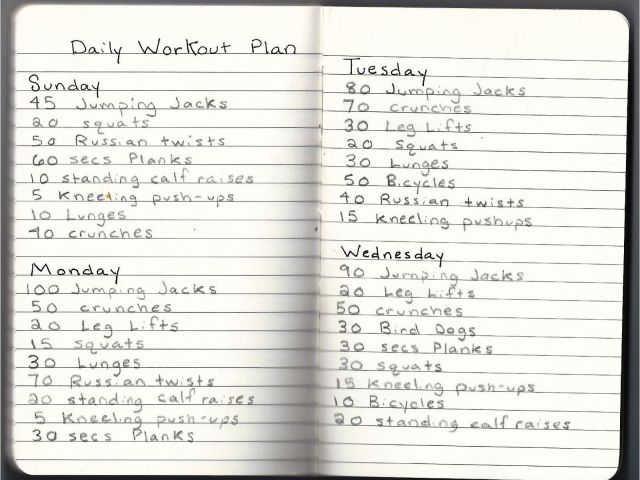 Daily Workout Plan
Sunday
45 Jumping Jacks
20 squats
50 Russian twists
60 secs Planks
10 standing calf raises
5 Kneeling push-ups
10 Lunges
40 crunches
Monday
100 Jumping Jacks
50 crunches
20 Leg Lifts
15 squats
30 Lunges
70 Russian twists
20 standing calf raises
5 Kneeling push-ups
30 secs Planks
Tuesday
80 Jumping Jacks
70 crunches
30 Leg Lifts
20 Squats
30 Lunges
50 Bicycles
40 Russian twists
15 Kneeling pushups
Wednesday
90 Jumping Jacks
20 Leg Lifts
50 crunches
30 Bird Dogs
30 secs Planks
30 squats
15 Kneeling push-ups
10 Bicycles
20 standing calf raises